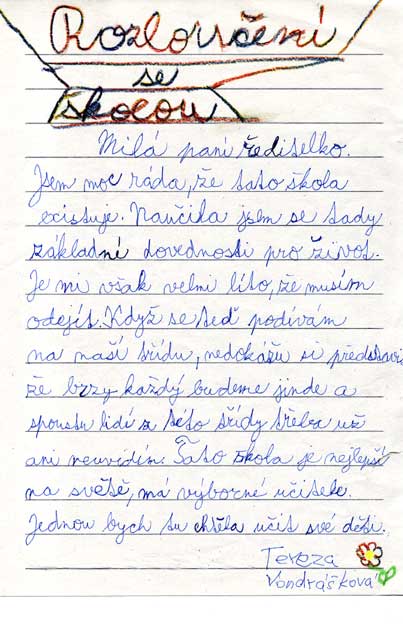 Rozloučení
se
školou
Milá paní ředitelko.
Jsem moc ráda, že tato škola
existuje. Naučila jsem se tady
základní dovednosti pro život.
Je mi však velmi líto, že musím
odejít. Když se teď podívám
na naší třídu, nedokážu si představi
že brzy každý budeme jinde a
spoustu lidí z této třídy třeba už
ani neuvidím. Tato škola je nejlepší
na světě, má výborné učitele.
Jednou bych tu chtěla učit své děti.
Tereza
Vondrášková